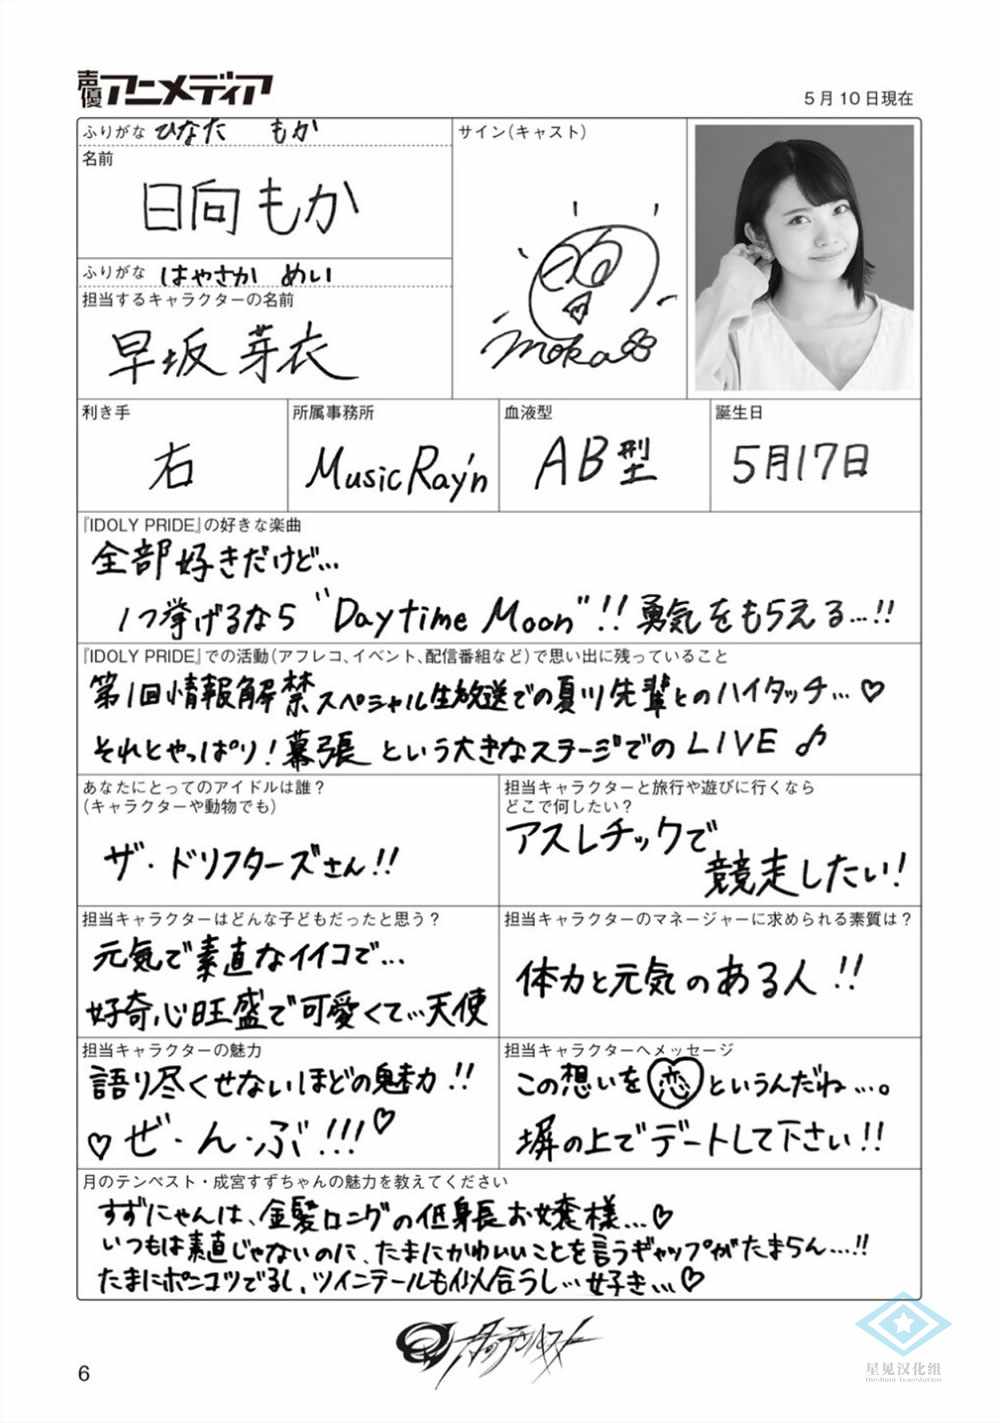 声優アニメディア
5月10日現在
ふりがな ひなた もか
名前
日向もか
サイン(キャスト)
moka
ふりがな はやさか めい
担当するキャラクターの名前
早坂 芽衣
利き手
右
所属事務所
Music Ray'n
血液型
AB型
誕生日
5月17日
『IDOLY PRIDE』の好きな楽曲
全部好きだけど...
1つ挙げるなら "Daytime Moon"!! 勇気をもらえる...!!
『IDOLY PRIDE』での活動(アフレコ、イベント、配信番組など)で思い出に残っていること
第1回情報解禁スペシャル生放送での夏川先輩とのハイタッチ...♡
それとやっぱり!幕張という大きなステージでのLIVE♪
あなたにとってのアイドルは誰?
(キャラクターや動物でも)
ザ・ドリフターズさん!!
担当キャラクターと旅行や遊びに行くなら
どこで何したい?
アスレチックで
競走したい!
担当キャラクターはどんな子どもだったと思う?
元気で素直なイイコで...
好奇心旺盛で可愛くて...天使
担当キャラクターのマネージャーに求められる素質は?
体力と元気のある人!!
担当キャラクターの魅力
語り尽くせないほどの魅力!!
♡ぜ・ん・ぶ!!!♡
担当キャラクターへメッセージ
この想いを恋というんだね...。
塀の上でデートして下さい!!
月のテンペスト・成宮すずちゃんの魅力を教えてください
すずにゃんは、金髪ロングの低身長お嬢様...♡
いつもは素直じゃないのに、たまにかわいいことを言うギャップがたまらん...!!
たまにポンコツでるし、ツインテールも似合うし...好き...♡
月のテンペスト
6
星见汉化组